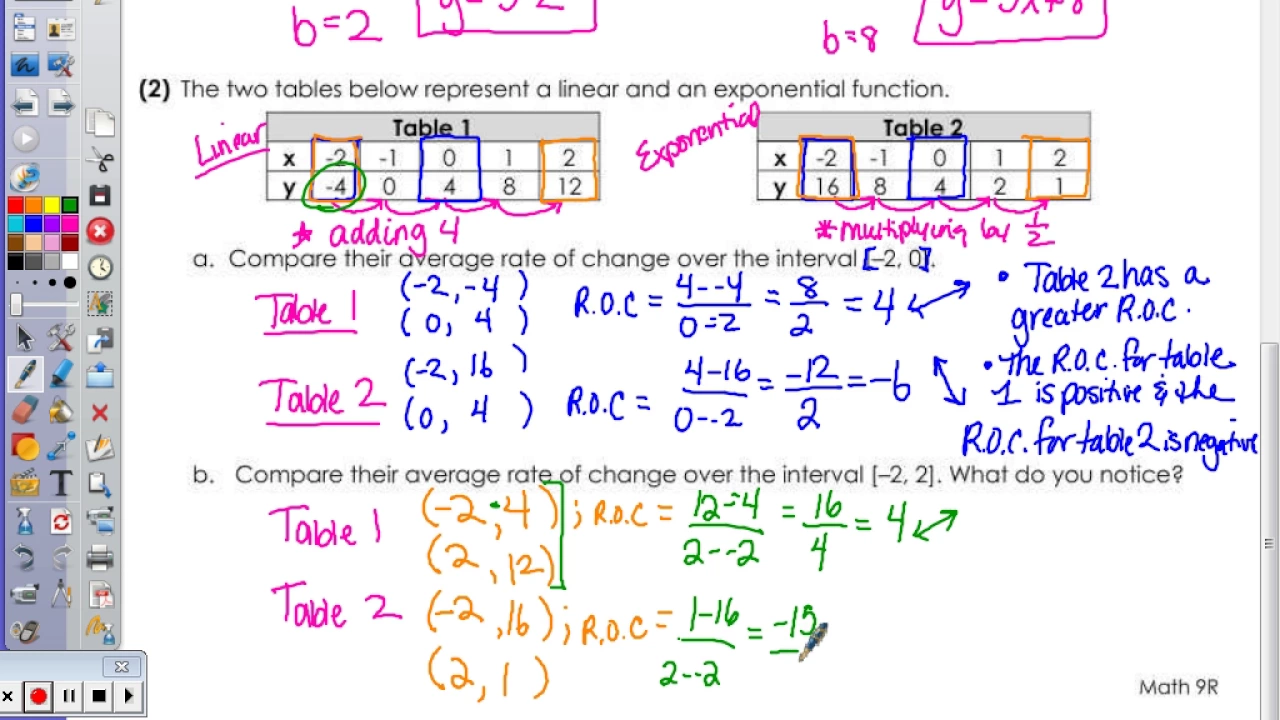 b=2
b=8
(2) The two tables below represent a linear and an exponential function.
Linear
Table 1
x -2 -1 0 1 2
y -4 0 4 8 12
* adding 4
Exponential
Table 2
x -2 -1 0 1 2
y 16 8 4 2 1
*multiplying by 1/2
a. Compare their average rate of change over the interval [–2, 0].
Table 1 (-2, -4) R.O.C = 4--4 / 0-2 = 8/2 = 4
(0, 4)
Table 2 (-2, 16) R.O.C = 4-16 / 0--2 = -12/2 = -6
(0, 4)
• Table 2 has a
greater R.O.C.
• The R.O.C. for table
1 is positive & the
R.O.C. for table 2 is negative
b. Compare their average rate of change over the interval [–2, 2]. What do you notice?
Table 1 (-2, -4) ; R.O.C = 12--4 / 2--2 = 16/4 = 4
(2, 12)
Table 2 (-2, 16) ; R.O.C = 1-16 / 2--2 = -15
(2, 1)
Math 9R